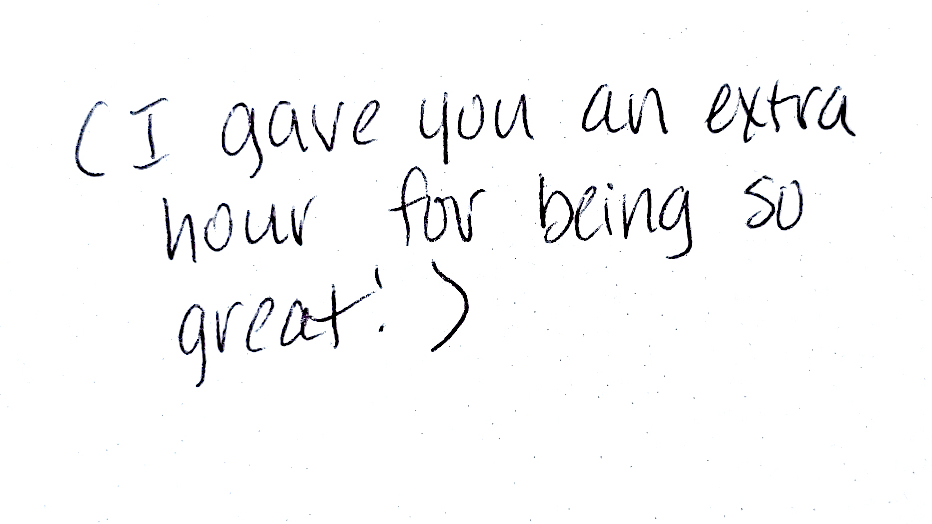 (I gave you an extra
hour for being so
great!)